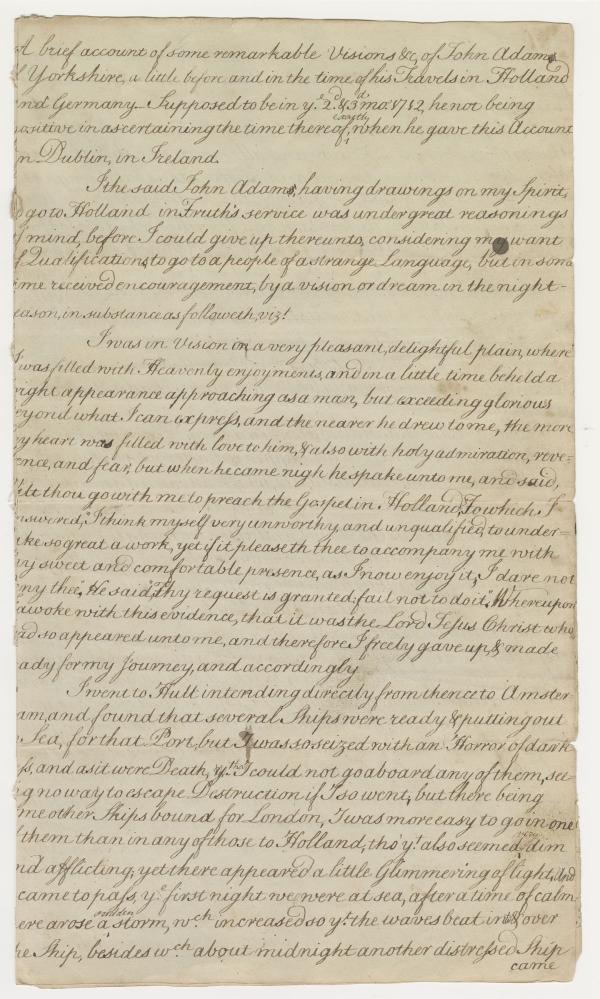 A brief account of some remarkable Visions &c, of John Adams
of Yorkshire, a little before and in the time of his Travels in Holland
and Germany. Supposed to be in ye. 2d. & 3d. mo: 1712, he not being
positive in ascertaining the time thereof, exactly when he gave this Account
in Dublin, in Ireland.
I the said John Adams, having drawings on my Spirit,
to go to Holland in Truth's service was under great reasonings
of mind, before I could give up thereunto, considering my want
of Qualifications, to go to a people of a strange Language, but in some
time received encouragement, by a vision or dream in the night-
season, in substance as followeth, viz!
I was in Vision in a very pleasant, delightful plain, where
I was filled with Heavenly enjoyments, and in a little time beheld a
bright appearance approaching as a man, but exceeding glorious
beyond what I can express, and the nearer he drew to me, the more
my heart was filled with love to him, & also with holy admiration, reve=
rence, and fear, but when he came nigh he spake unto me, and said,
Wilt thou go with me to preach the Gospel in Holland, To which I
answered, "I think myself very unworthy, and unqualified, to under=
take so great a work, yet if it please thee to accompany me with
thy sweet and comfortable presence, as I now enjoy it, I dare not
deny thee". He said, "Thy request is granted; fail not to do it". Whereupon
I awoke with this evidence, that it was the Lord Jesus Christ who
had so appeared unto me, and therefore I freely gave up, & made
ready for my Journey, and accordingly
I went to Hull intending directly from thence to Amster
dam, and found that several Ships were ready & putting out
to Sea, for that Port, but I was so seized with an Horror of dark
ness, and as it were Death, yt. that I could not go aboard any of them, see=
ing no way to escape Destruction if I so went; but there being
some other Ships bound for London, I was more easy to go in one
of them than in any of those to Holland, tho' yt. also seemed very dim
and afflicting; yet there appeared a little Glimmering of Light, And
it came to pass, ye. first night we were at sea, after a time of calm
there arose a sudden storm, wch. increased so yt. the waves beat into & over
the Ship, besides wch. about midnight another distressed Ship
came